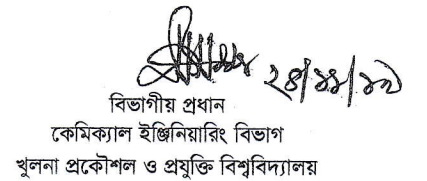 বিভাগীয় প্রধান
কেমিক্যাল ইঞ্জিনিয়ারিং বিভাগ
খুলনা প্রকৌশল ও প্রযুক্তি বিশ্ববিদ্যালয়